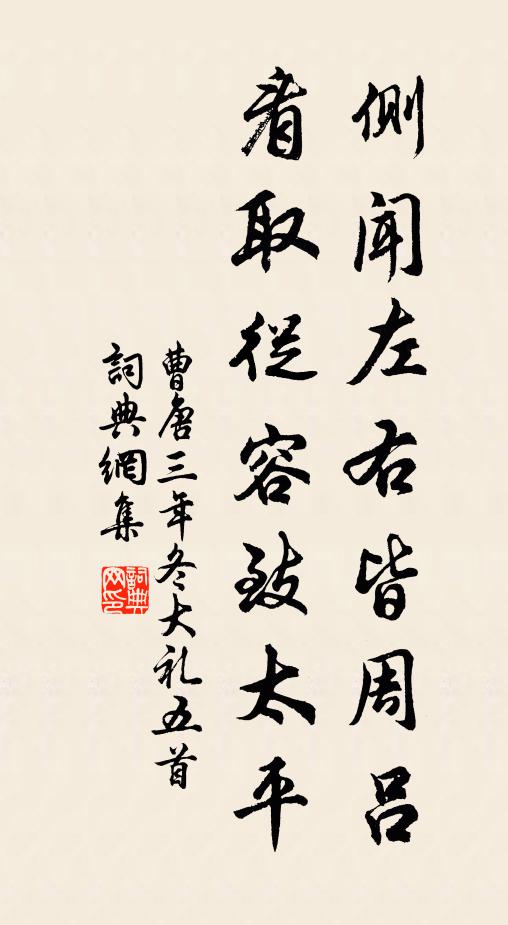 側聞左右皆周呂
看取從容致太平
曹唐三年冬大礼五首
詞典網集
詞典网印